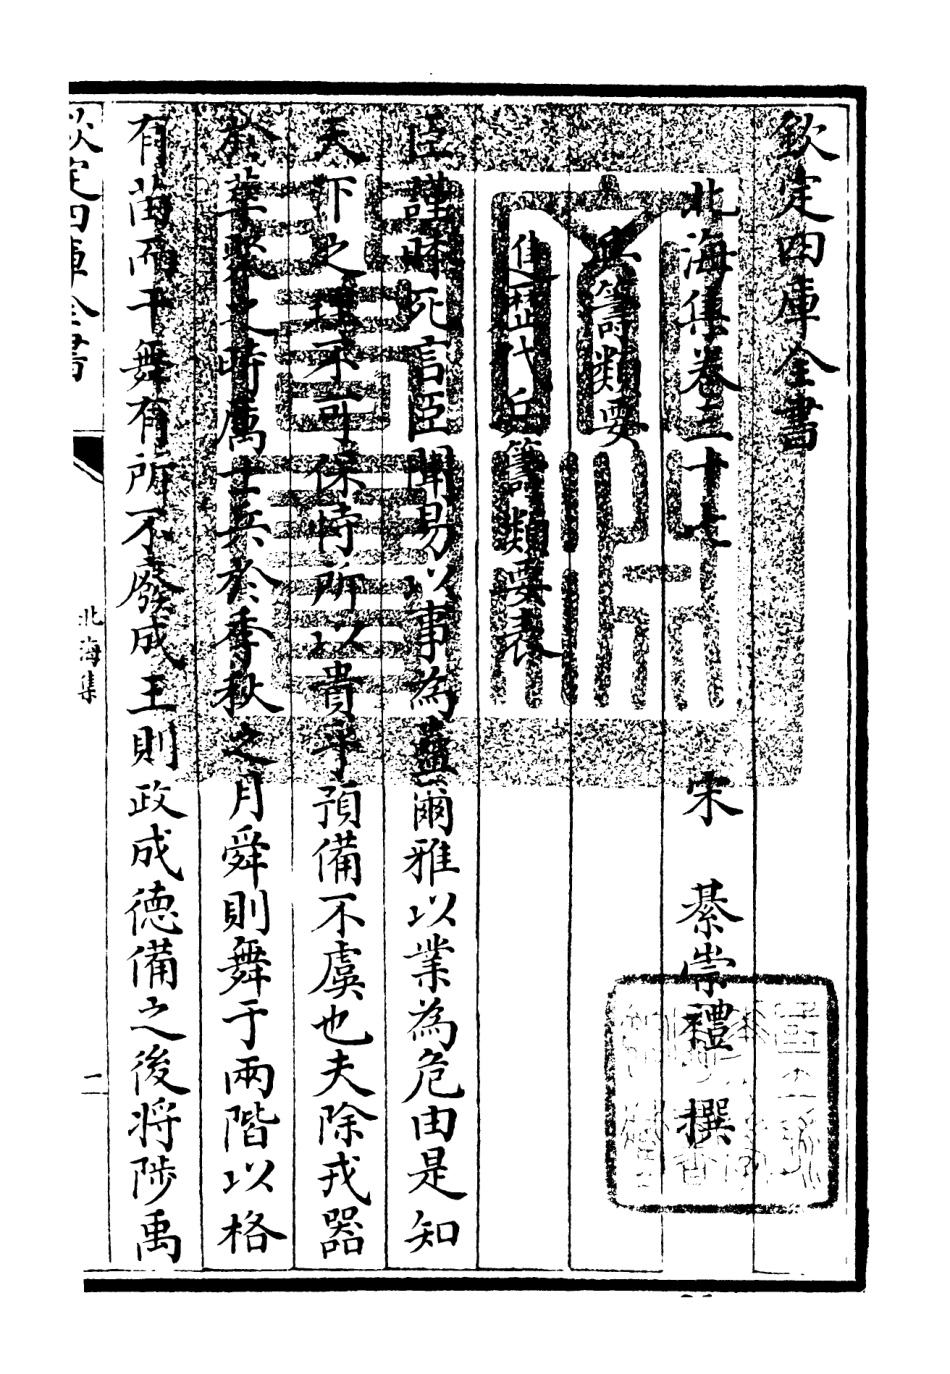 欽定四庫全書
北海集卷三十七
宋 綦崇禮 撰
兵籌類要
進歷代兵籌類要表
臣謹昧死言臣聞易以事為蠱爾雅以業為危由是知
天下之理不可保恃所以貴乎預備不虞也夫除戎器
於萃聚之時厲士兵於季秋之月舜則舞于兩階以格
有苗而干舞有所不廢成王則政成德備之後將陟禹
欽定四庫全書
北海集
二